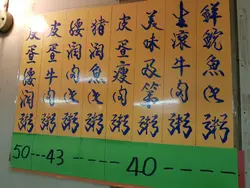 鮮鯇魚片粥
生滾牛肉粥
美味及第粥
皮蛋瘦肉粥
豬潤魚片粥
腰潤肉片粥
皮蛋牛肉粥
皮蛋腰潤粥
50---43----40----